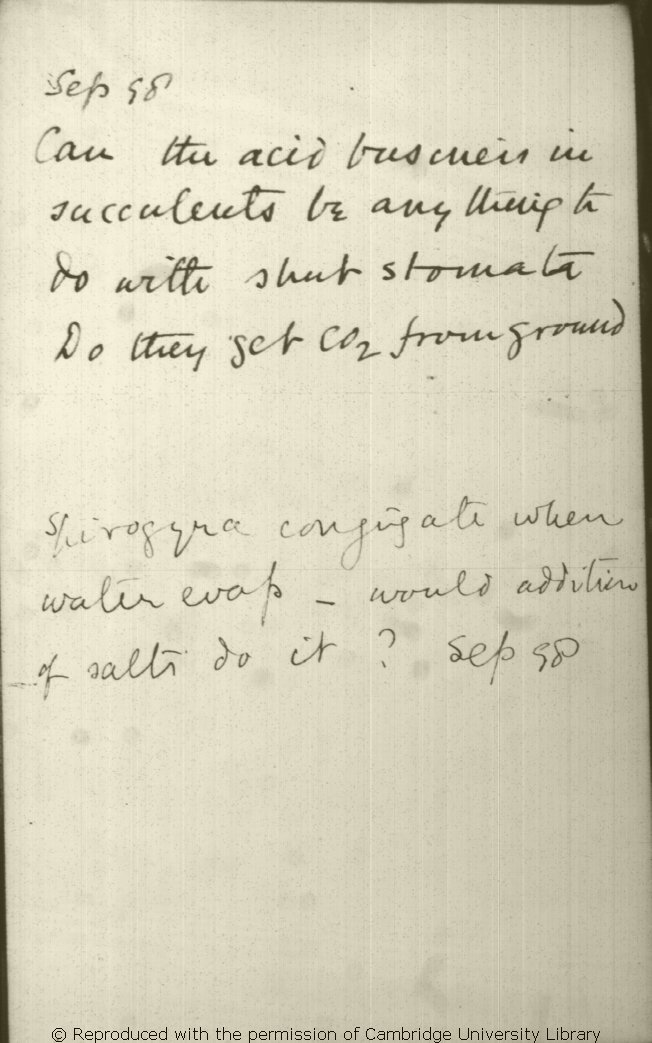 Sep 98
Can the acid business in
succulents be anything to
do with shut stomata
Do they get CO2 from ground
Spirogyra conjugate when
water evap – would addition
of salts do it? Sep 98
© Reproduced with the permission of Cambridge University Library